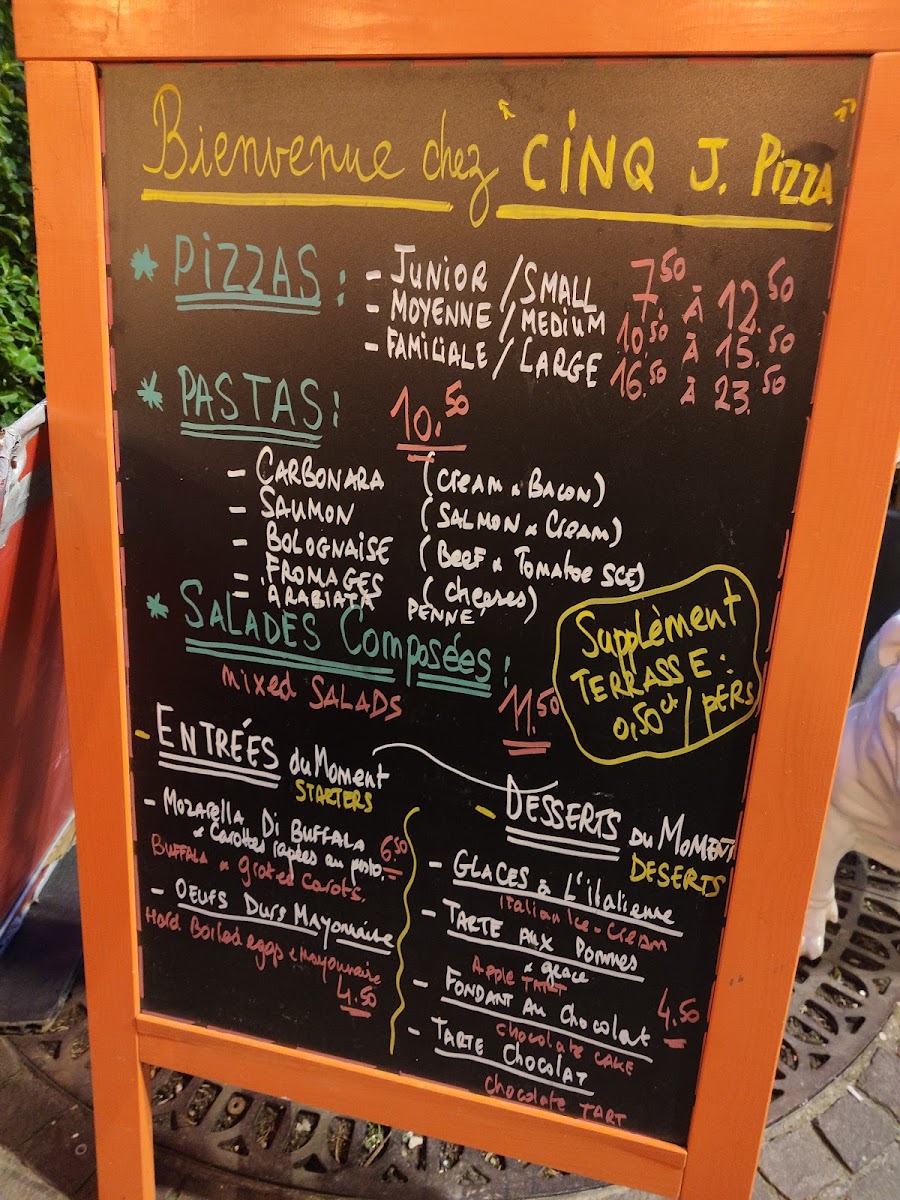 Bienvenue chez "CINQ J. PIZZA"
* PIZZAS : - JUNIOR / SMALL 7.50 À 12.50
- MOYENNE / MEDIUM 10.50 À 15.50
- FAMILIALE / LARGE 16.50 À 23.50
* PASTAS : 10.50
- CARBONARA (CREAM & BACON)
- SAUMON (SALMON & CREAM)
- BOLOGNAISE (BEEF & TOMATOE SCE)
- FROMAGES (cheeses)
- ARABIATA PENNE
* SALADES Composées : 11.50
Mixed SALADS
Supplèment
TERRASSE :
0,50ct / PERS
- ENTRÉES du Moment
STARTERS
- MOZARELLA DI BUFFALA
& Carottes rapées au pesto. 6.50
BUFFALA & grated carots.
- OEUFS DURS MAYONNAISE
Hard Boiled eggs & Mayonnaise
4.50
- DESSERTS DU MOMENT
DESERTS
- GLACES à L'italienne
italian ice-cream
- TARTE AUX POMMES
& glace
APPLE TART
- FONDANT AU Chocolat 4.50
chocolate CAKE
- TARTE Chocolat
chocolate TART